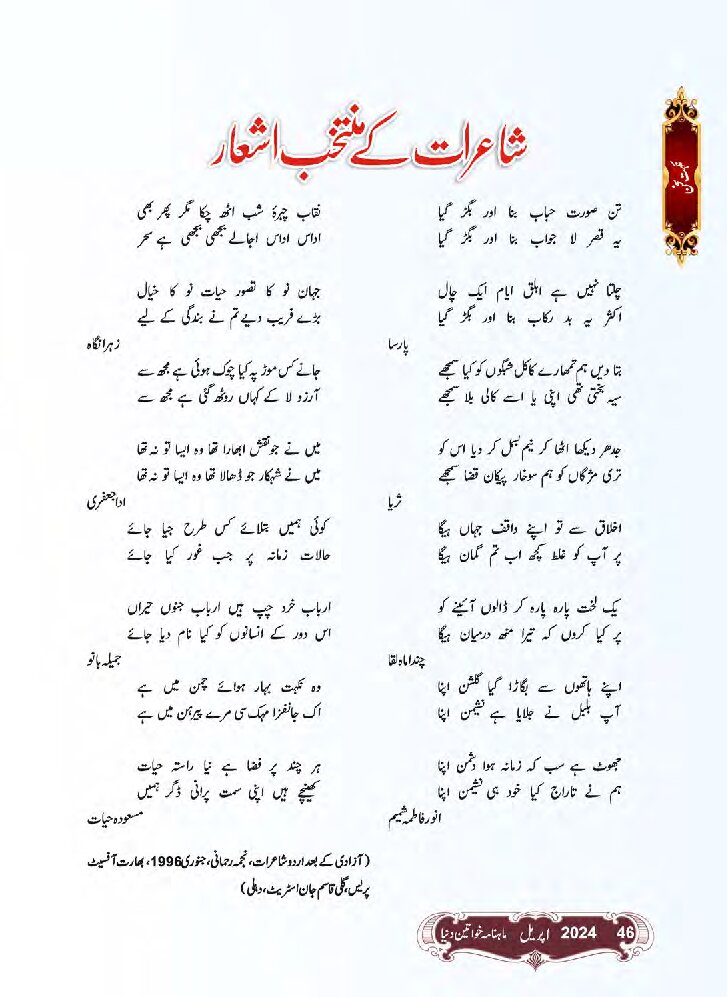 شاعرات کے منتخب اشعار
تن صورت حباب بنا اور بگڑ گیا
یہ قصر لا جواب بنا اور بگڑ گیا
چلتا نہیں ہے ابلق ایام ایک چال
اکثر یہ بد رکاب بنا اور بگڑ گیا
پارسا
بتا دیں ہم تمھارے کاکل شبگوں کو کیا سمجھے
سیہ بختی تھی اپنی یا اسے کالی بلا سمجھے
جدھر دیکھا اٹھا کر نیم بسمل کر دیا اس کو
تری مژگاں کو ہم سوخار پیکان قضا سمجھے
ثریا
اخلاق سے تو اپنے واقف جہاں ہیگا
پر آپ کو غلط کچھ اب تم گمان ہیگا
یک لخت پارہ پارہ کر ڈالوں آئینے کو
پر کیا کروں کہ تیرا منھ درمیان ہیگا
چندا ماہ لقا
اپنے ہاتھوں سے بگاڑا گیا گلشن اپنا
آپ بلبل نے جلایا ہے نشیمن اپنا
جھوٹ ہے سب کہ زمانہ ہوا دشمن اپنا
ہم نے تاراج کیا خود ہی نشیمن اپنا
انور فاطمہ شمیم
نقاب چہرۂ شب اٹھ چکا مگر پھر بھی
اداس اداس اجالے بجھی بجھی ہے سحر
جہان نو کا تصور حیات نو کا خیال
بڑے فریب دیے تم نے بندگی کے لیے
زہرا نگاہ
جانے کس موڑ پہ کیا چوک ہوئی ہے مجھ سے
آرزو لا کے کہاں روٹھ گئی ہے مجھ سے
میں نے جو نقش ابھارا تھا وہ ایسا تو نہ تھا
میں نے شہکار جو ڈھالا تھا وہ ایسا تو نہ تھا
ادا جعفری
کوئی ہمیں بتلائے کس طرح جیا جائے
حالات زمانہ پر جب غور کیا جائے
ارباب خرد چپ ہیں ارباب جنوں حیراں
اس دور کے انسانوں کو کیا نام دیا جائے
جمیلہ بانو
وہ نکہت بہار ہوائے چمن میں ہے
اک جانفزا مہک سی مرے پیرہن میں ہے
ہر چند پر فضا ہے نیا راستہ حیات
کھینچے ہیں اپنی سمت پرانی ڈگر ہمیں
مسعودہ حیات
(آزادی کے بعد اردو شاعرات، نجمہ رحمانی، جنوری 1996، بھارت آفسیٹ
پریس، گلی قاسم جان اسٹریٹ، دہلی)
ماہنامہ خواتین دنیا اپریل 2024 46